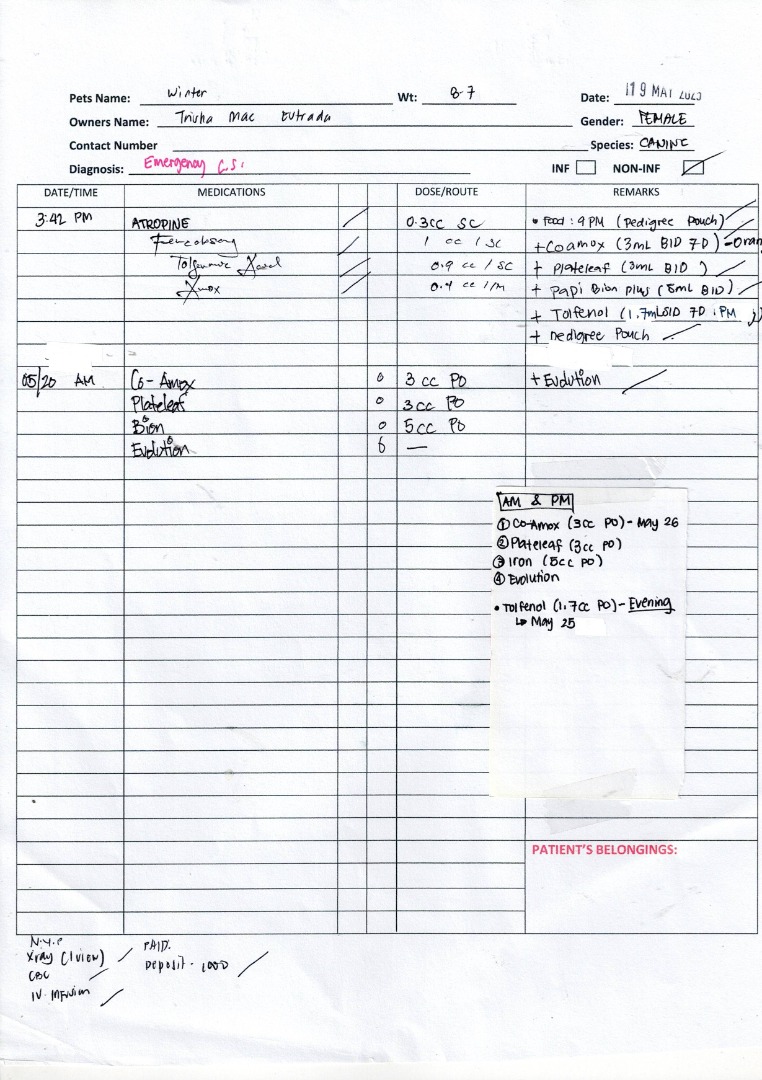 Pets Name: Winter Wt: 8.7 Date: 19 MAY 2023
Owners Name: Trisha Mae Gender: FEMALE
Contact Number Species: CANINE
Diagnosis: Emergency C.S. INF NON-INF
DATE/TIME MEDICATIONS DOSE/ROUTE REMARKS
3:42 PM ATROPINE 0.3cc SC • Food: 9PM (Pedigree Pouch)
1 cc / SC + Coamox (3mL BID 7D) - Oran
Tolfenamic 0.9 cc / SC + Plateleaf (3mL BID)
Amox 0.4 cc / IM + Papi Bion plus (5mL BID)
+ Tolfenol (1.7mL SID 7D : PM )
+ Pedigree Pouch
05/20 AM Co-Amox 0 3 cc PO + Evolution
Plateleaf 0 3cc PO
Bion 0 5cc PO
Evolution 6 —
AM & PM
① Co-Amox (3cc PO) - May 26
② Plateleaf (3cc PO)
③ Iron (5cc PO)
④ Evolution
• Tolfenol (1.7cc PO) - Evening
↳ May 25
PATIENT'S BELONGINGS:
N.Y.P PAID.
Xray (1 view) Deposit - 1000
CBC
IV. Infusion